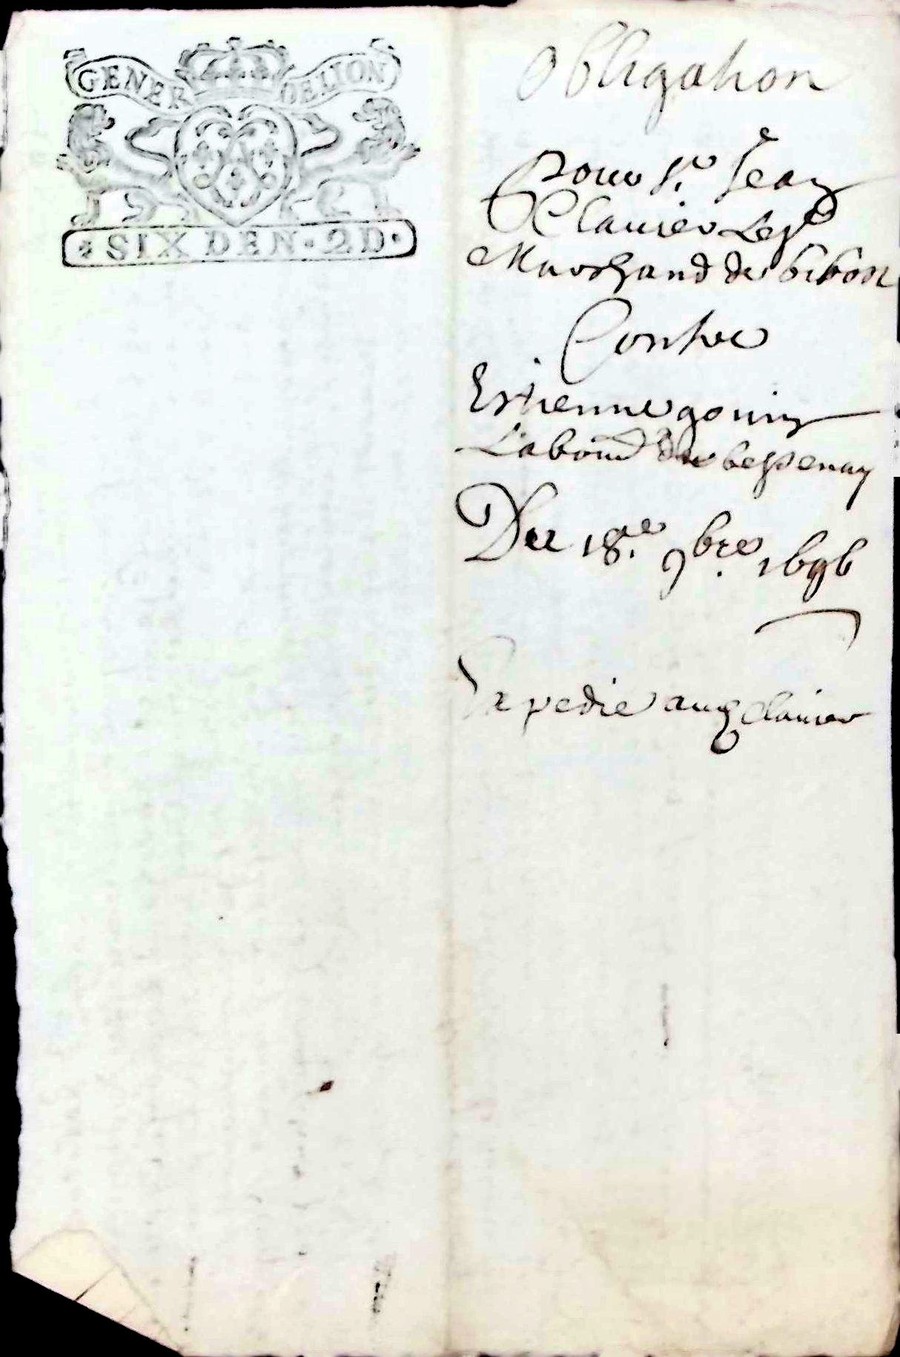 GENER DELION
SIX DEN. 2D.
Obligation
Pour Sr Jean
Clavier
Marchand de bibost
Contre
Estienne gonin
Labour de bessenay
Du 18e 9bre 1696
Expedie aud clavier